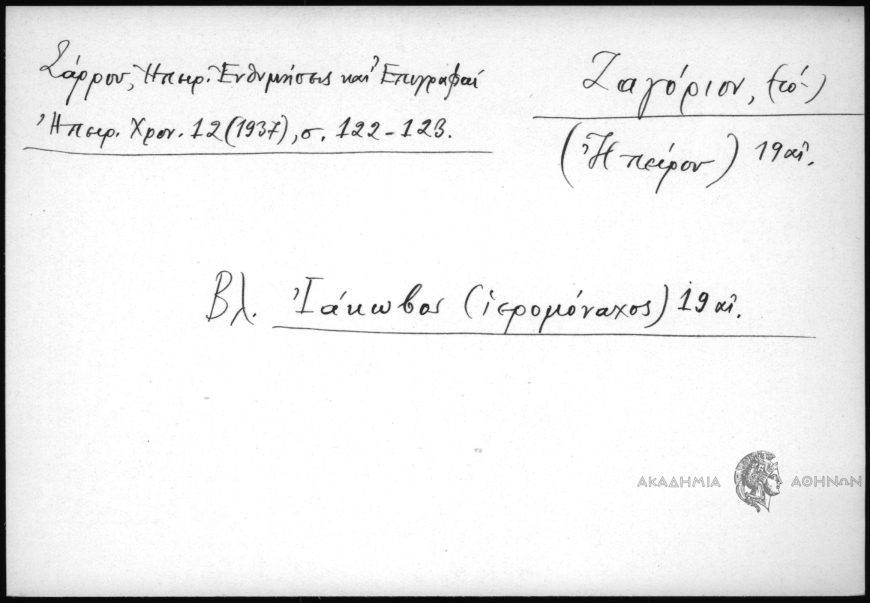 Σάρρου, Ἠπειρ. Ἐνθυμήσεις καὶ Ἐπιγραφαί
Ἠπειρ. Χρον. 12 (1937), σ. 122-123.
Ζαγόριον, (τό-)
(Ἠπείρου) 19 αἰ.
Βλ. Ἰάκωβος (ἱερομόναχος) 19 αἰ.
ΑΚΑΔΗΜΙΑ ΑΘΗΝΩΝ